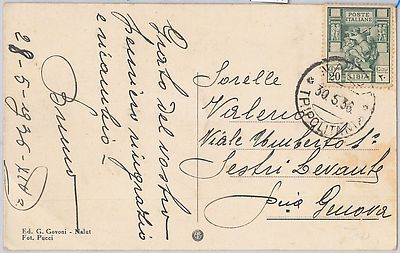 28-5-1936-XIV
Grato del vostro
pensiero ringrazio
e ricambio-
Bruno
Ed. G. Govoni - Nalut
Fot. Pucci
POSTE
ITALIANE
20
LIBIA
30.5.36
TRIPOLITANIA
Sorelle
Valerio
Viale Umberto 1º
Sestri Levante
Genova